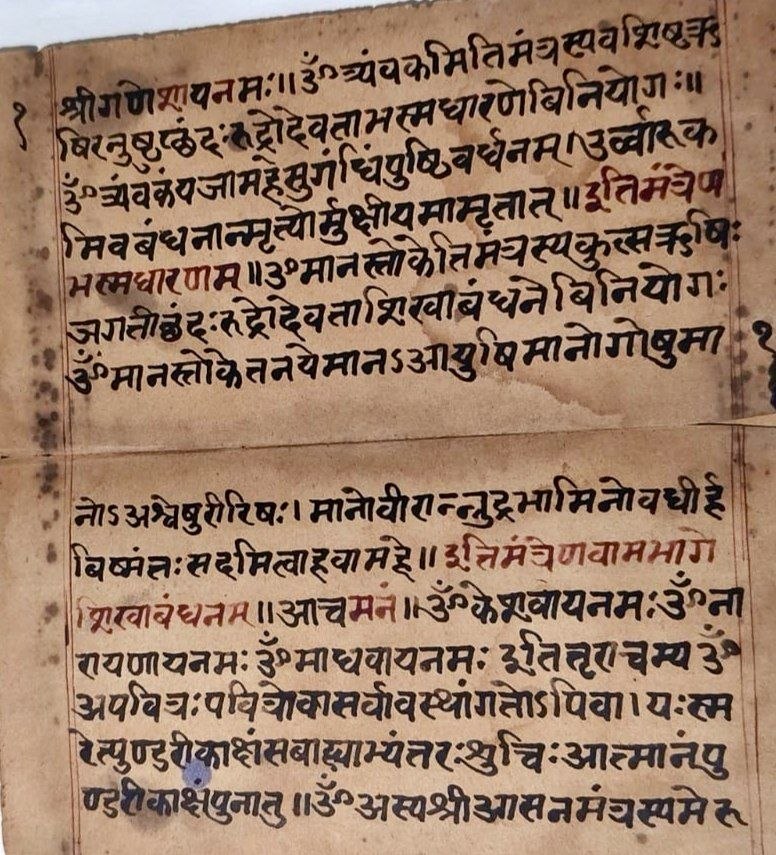 श्रीगणेशायनमः॥ ॐ त्र्यंवकमितिमंत्रस्यवशिष्टऋ
षिरनुष्टुप्छंदःरुद्रोदेवताभस्मधारणेबिनियोगः॥
ॐ त्र्यंवकंयजामहेसुगंधिंपुष्टिवर्धनम्।उर्व्वारुक
मिवबंधनान्मृत्योर्मुक्षीयमामृतात्॥इतिमंत्रेण
भस्मधारणम्॥ॐमानस्तोकेतिमंत्रस्यकुत्सऋषिः
जगतीछंदःरुद्रोदेवताशिखाबंधनेबिनियोगः
ॐमानस्तोकेतनयेमानऽआयुषिमानोगोषुमा
१
१
नोऽअश्वेषुरीरिषः।मानोवीरान्नुद्रभामिनोवधीर्ह
विष्मंतःसदमित्वाहवामहे॥इतिमंत्रेणवामभागे
शिखाबंधनम्॥आचमनं॥ॐकेशवायनमःॐना
रायणायनमःॐमाधवायनमः इतित्तृराचम्यॐ
अपवित्रःपवित्रोवासर्वावस्थांगतोऽपिवा।यःस्म
रेत्पुण्डरीकाक्षंसबाह्याभ्यंतरःश्रुचिःआत्मानंपु
ण्डरीकाक्षंपुनातु॥ॐअस्यश्रीआसनमंत्रस्यमेरु